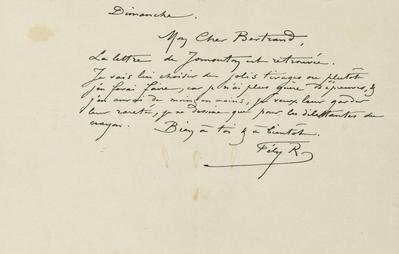 Dimanche.
Mon Cher Bertrand,
La lettre de est retrouvée.
Je vais lui choisir de jolis tirages ou plutôt
j'en ferai faire, car je n'ai plus guère d'épreuves, &
j'en aurai de moins en moins, je veux leur garder
leur rareté, je ne dessine que pour les dilettantes du
crayon. Bien à toi & à bientôt.
Fély R